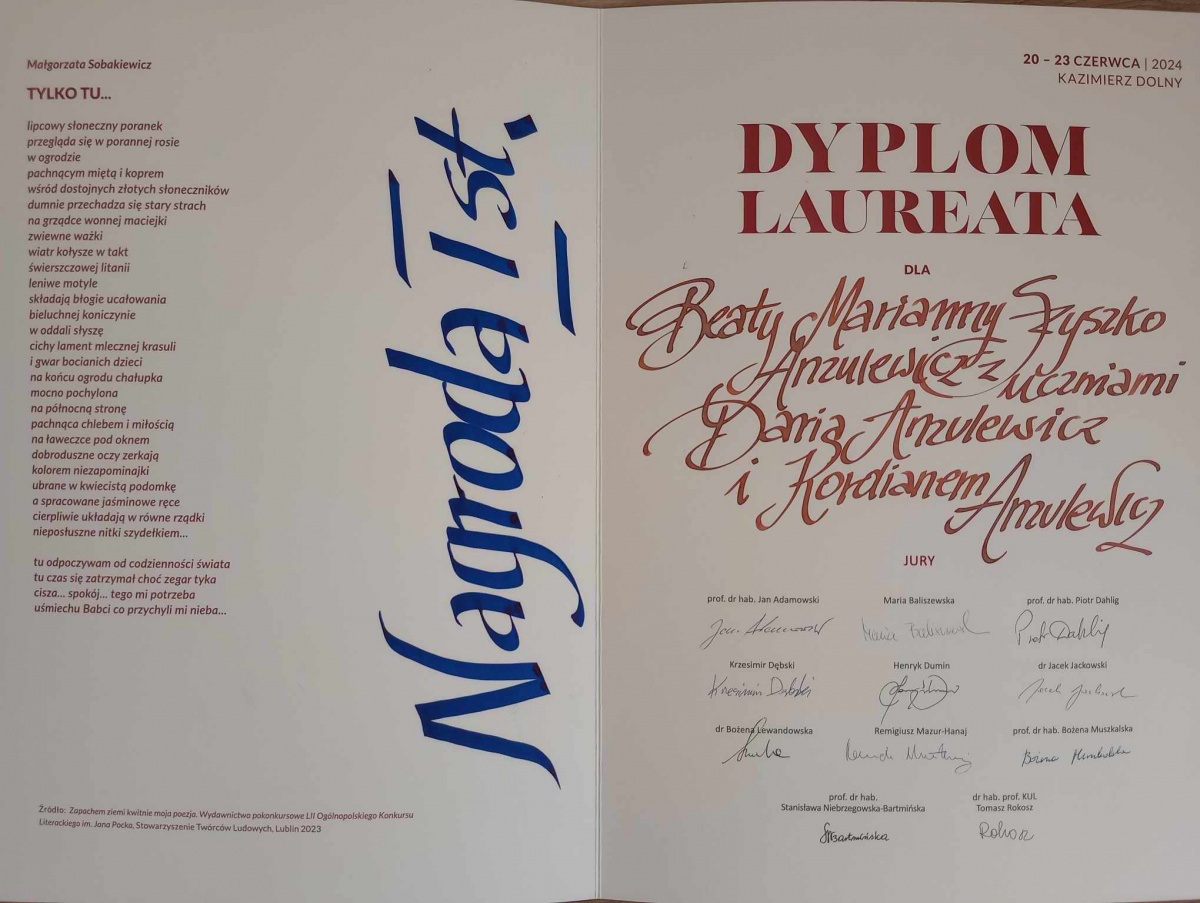 Małgorzata Sobakiewicz
TYLKO TU...
lipcowy słoneczny poranek
przegląda się w porannej rosie
w ogrodzie
pachnącym miętą i koprem
wśród dostojnych złotych słoneczników
dumnie przechadza się stary strach
na grządce wonnej maciejki
zwiewne ważki
wiatr kołysze w takt
świerszczowej litanii
leniwe motyle
składają błogie ucałowania
bieluchnej koniczynie
w oddali słyszę
cichy lament mlecznej krasuli
i gwar bocianich dzieci
na końcu ogrodu chałupka
mocno pochylona
na północną stronę
pachnąca chlebem i miłością
na ławeczce pod oknem
dobroduszne oczy zerkają
kolorem niezapominajki
ubrane w kwiecistą podomkę
a spracowane jaśminowe ręce
cierpliwie układają w równe rządki
nieposłuszne nitki szydełkiem...
tu odpoczywam od codzienności świata
tu czas się zatrzymał choć zegar tyka
cisza... spokój... tego mi potrzeba
uśmiechu Babci co przychyli mi nieba...
Źródło: Zapachem ziemi kwitnie moja poezja. Wydawnictwo pokonkursowe LII Ogólnopolskiego Konkursu
Literackiego im. Jana Pocka, Stowarzyszenie Twórców Ludowych, Lublin 2023
Nagroda I st.
20 – 23 CZERWCA | 2024
KAZIMIERZ DOLNY
DYPLOM
LAUREATA
DLA
Beaty Marianny Szyszko
Anzulewicz z uczniami
Darią Anzulewicz
i Kordianem Anzulewicz
JURY
prof. dr hab. Jan Adamowski Maria Baliszewska prof. dr hab. Piotr Dahlig
Piotr Dahlig
Krzesimir Dębski Henryk Dumin dr Jacek Jackowski
Krzesimir Dębski
dr Bożena Lewandowska Remigiusz Mazur-Hanaj prof. dr hab. Bożena Muszkalska
prof. dr hab. dr hab. prof. KUL
Stanisława Niebrzegowska-Bartmińska Tomasz Rokosz
Rokosz